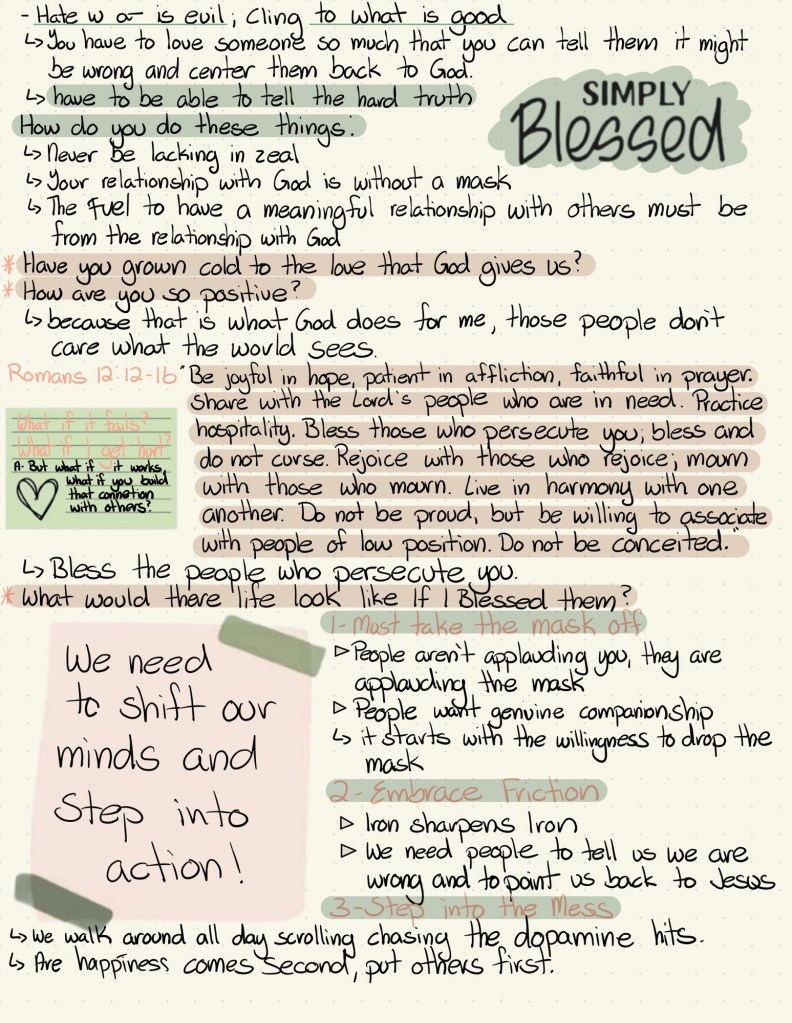 - Hate w a is evil; Cling to what is good
↳ You have to love someone so much that you can tell them it might
be wrong and center them back to God.
↳ have to be able to tell the hard truth
SIMPLY
Blessed
How do you do these things:
↳ Never be lacking in zeal
↳ Your relationship with God is without a mask
↳ The fuel to have a meaningful relationship with others must be
from the relationship with God
* Have you grown cold to the love that God gives us?
* How are you so positive?
↳ because that is what God does for me, those people don't
care what the would sees.
Romans 12:12-16 "Be joyful in hope, patient in affliction, faithful in prayer.
Share with the Lord's people who are in need. Practice
hospitality. Bless those who persecute you; bless and
do not curse. Rejoice with those who rejoice; mourn
with those who mourn. Live in harmony with one
another. Do not be proud, but be willing to associate
with people of low position. Do not be conceited."
What if it fails?
What if I get hurt?
A- But what if it works,
what if you build
that connetion
with others?
↳ Bless the people who persecute you.
* What would there life look like If I Blessed them?
We need
to shift our
minds and
Step into
action!
1- Must take the mask off
▷ People aren't applauding you, they are
applauding the mask
▷ People want genuine companionship
↳ it starts with the willingness to drop the
mask
2- Embrace Friction
▷ Iron sharpens Iron
▷ We need people to tell us we are
wrong and to point us back to Jesus
3-Step into the Mess
↳ We walk around all day scrolling chasing the dopamine hits.
↳ Are happiness comes second, put others first.